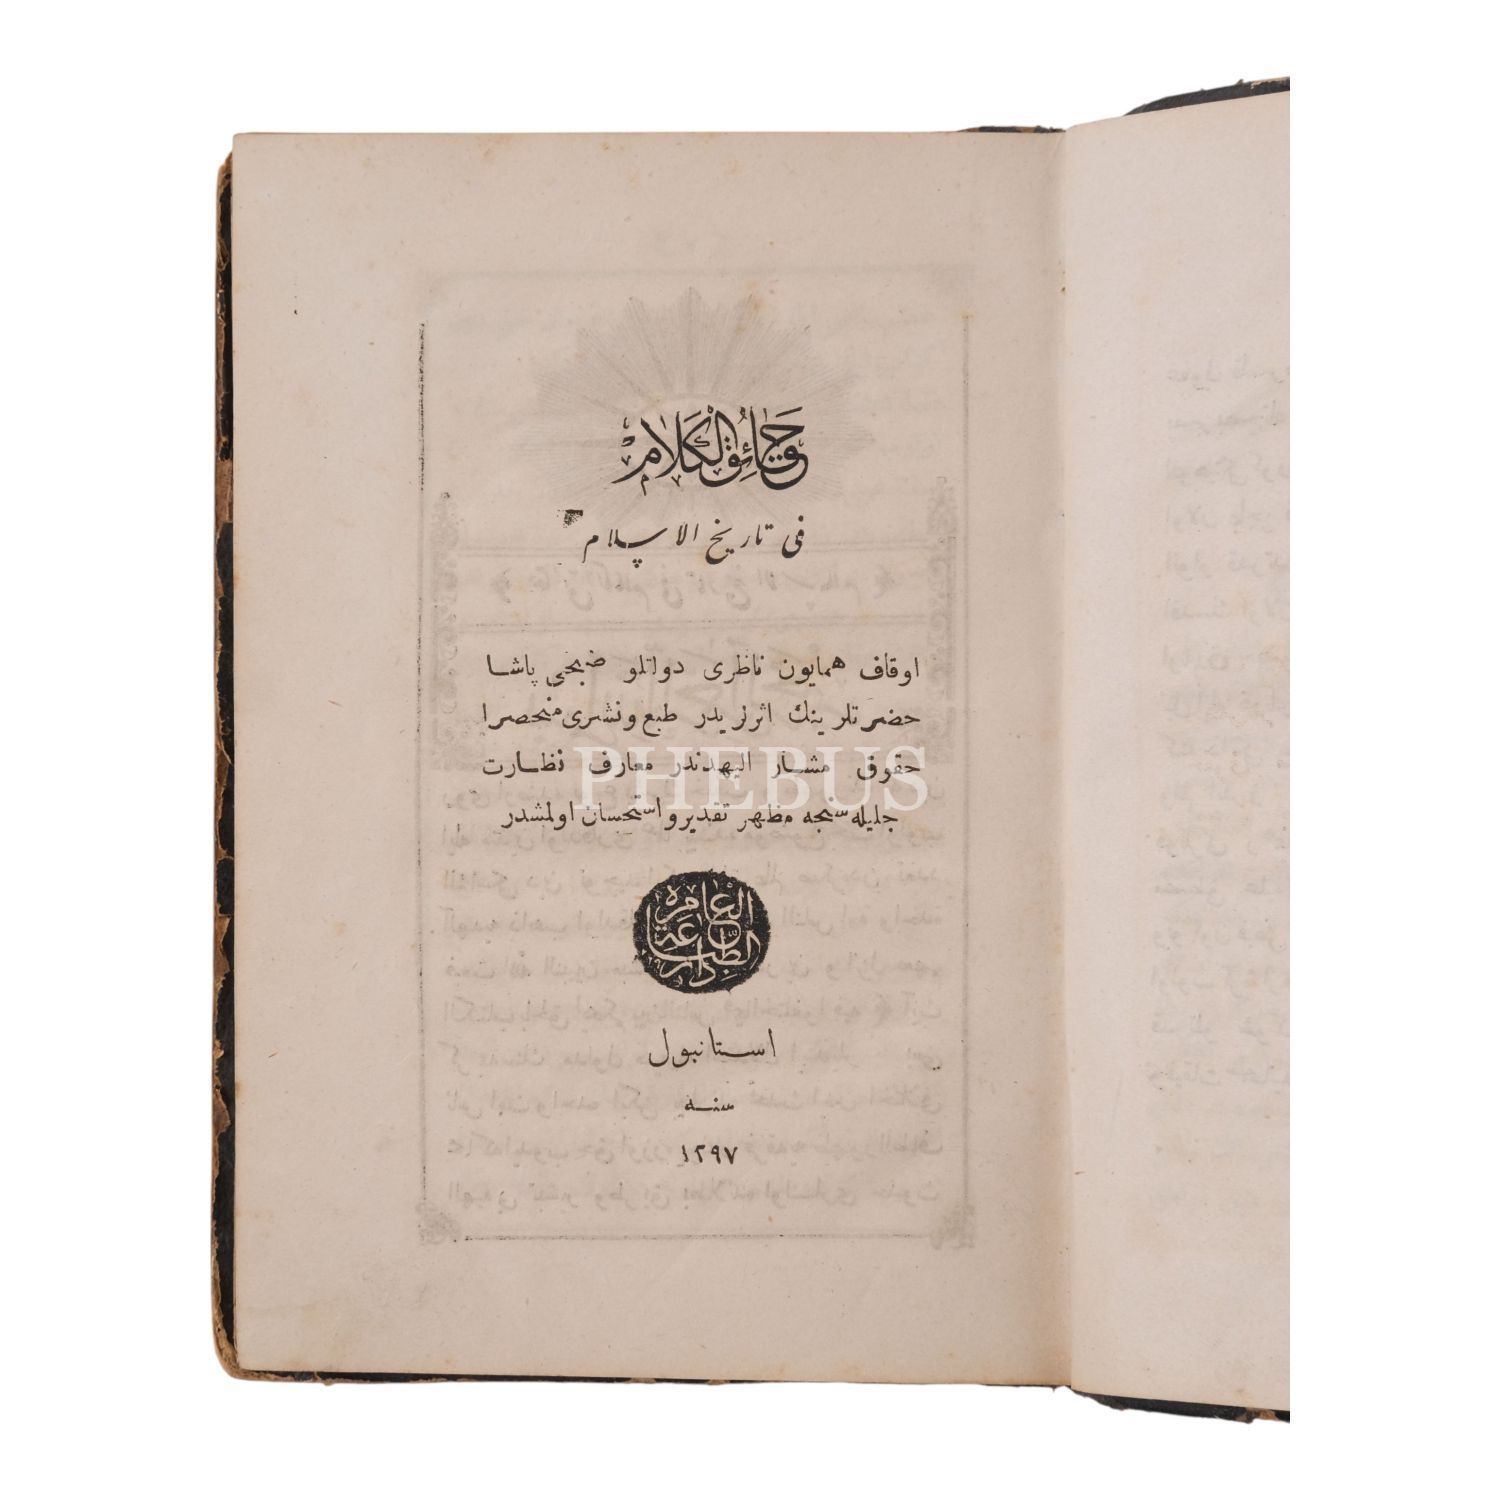 حقائق الكلام
فی تاریخ الاسلام
اوقاف همایون ناظری دولتلو صبحی پاشا
حضرتلرینك اثرلریدر طبع ونشری منحصرا
حقوق مشار الیهدندر معارف نظارت
جلیله سنجه مظهر تقدیر و استحسان اولمشدر
PHEBUS
دار الطباعة العامره
استانبول
سنه
١٢٩٧